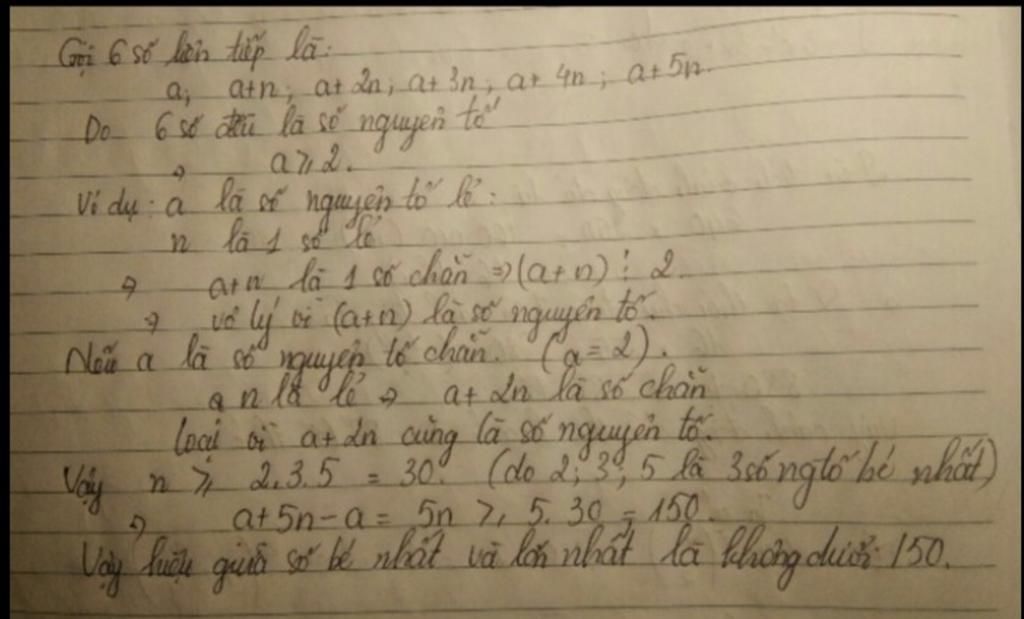 Gọi 6 số liên tiếp là:
a; a+n; a+2n; a+3n; a+4n; a+5n.
Do 6 số đều là số nguyên tố
⇒ a ≥ 2.
Ví dụ: a là số nguyên tố lẻ:
n là 1 số lẻ
⇒ a+n là 1 số chẵn ⇒ (a+n) ⋮ 2.
⇒ vô lý vì (a+n) là số nguyên tố.
Nếu a là số nguyên tố chẵn. (a=2).
a n là lẻ ⇒ a+2n là số chẵn
loại vì a+2n cũng là số nguyên tố.
Vậy n ≥ 2.3.5 = 30. (do 2; 3; 5 là 3 số ngtố bé nhất)
⇒ a+5n-a = 5n ≥ 5.30 = 150.
Vậy hiệu giữa số bé nhất và lớn nhất là không dưới 150.